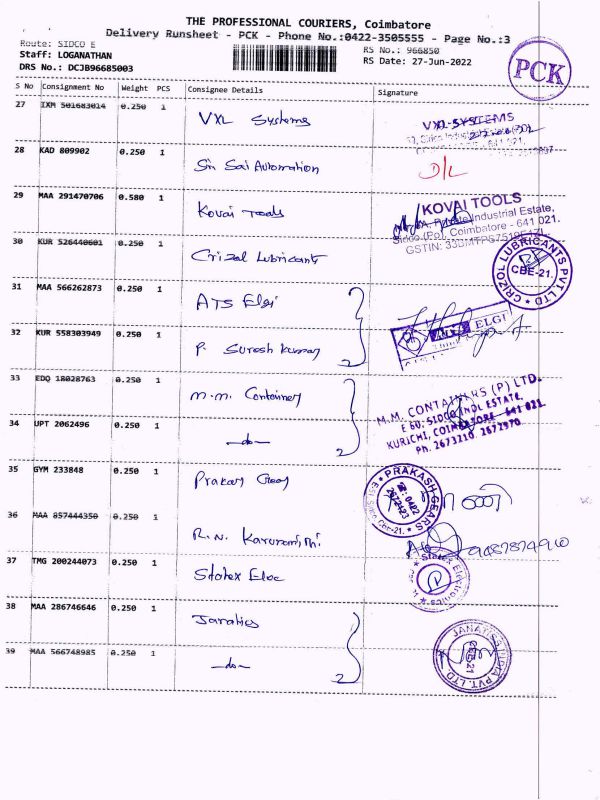 THE PROFESSIONAL COURIERS, Coimbatore
Delivery Runsheet - PCK - Phone No.:0422-3505555 - Page No.:3
Route: SIDCO E
Staff: LOGANATHAN
DRS No.: DCJB96685003
RS No.: 966850
RS Date: 27-Jun-2022
PCK
S No Consignment No Weight PCS Consignee Details Signature
27 IXM 501683014 0.250 1 VXL Systems
VXL SYSTEMS
28 KAD 809902 0.250 1 Sri Sai Automation D/L
29 MAA 291470706 0.580 1 Kovai Tools
KOVAI TOOLS
Private Industrial Estate,
Sidco (Po), Coimbatore - 641 021.
30 KUR 526440601 0.250 1 Crizol Lubricants
CRIZOL LUBRICANTS PVT. LTD
CBE-21.
31 MAA 566262873 0.250 1 ATS Elgi
ELGI
32 KUR 558303949 0.250 1 P. Suresh Kumar 2
33 EDQ 18028763 0.250 1 M.M. Container
M.M. CONTAINERS (P) LTD.
E 60, SIDCO INDL ESTATE,
KURICHI, COIMBATORE - 641 021.
Ph. 2673210, 2672970
34 UPT 2062496 0.250 1 -do- 2
35 GYM 233848 0.250 1 Prakash Gears
PRAKASH GEARS
Cbe-21.
36 MAA 857444350 0.250 1 R.N. Karunanithi
37 TMG 200244073 0.250 1 Statex Elec
Statex Electronics
38 MAA 286746646 0.250 1 Janatics
39 MAA 566748985 0.250 1 -do- 2
JANATICS INDIA PVT. LTD.
CBE-21